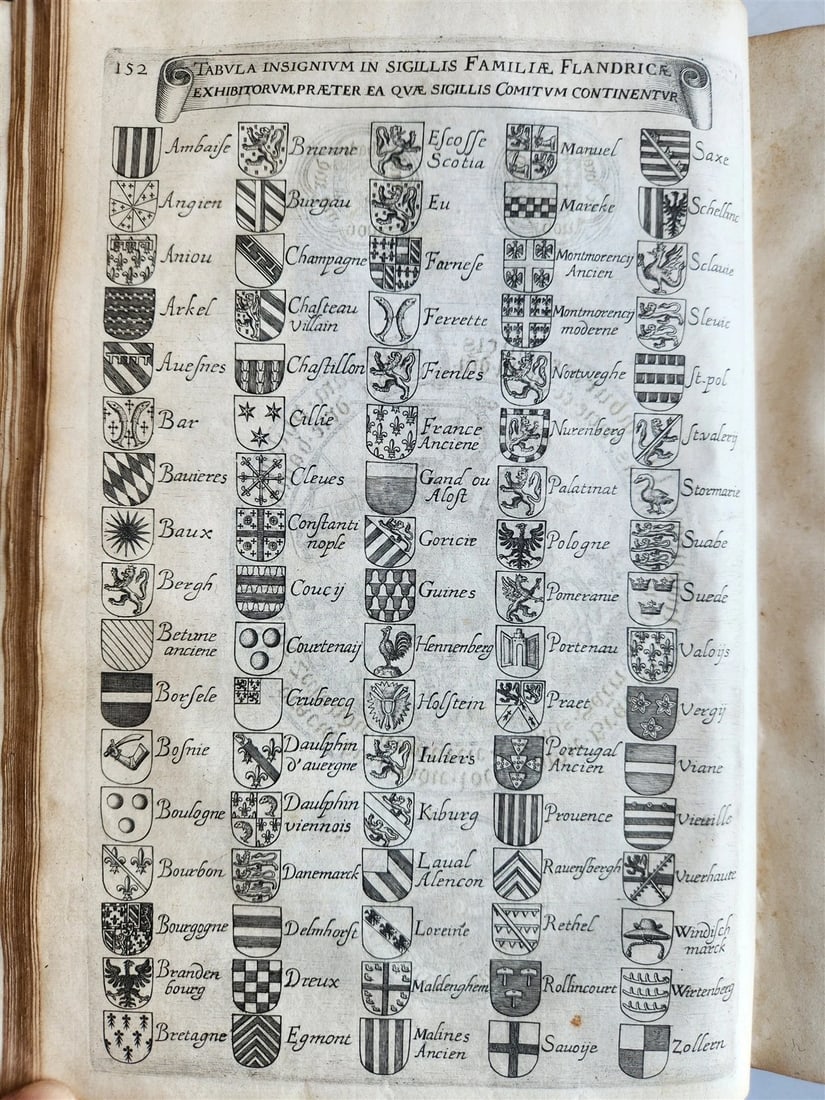 152
TABVLA INSIGNIVM IN SIGILLIS FAMILIÆ FLANDRICÆ
EXHIBITORVM, PRÆTER EA QVÆ SIGILLIS COMITVM CONTINENTVR
Ambaise
Angien
Aniou
Arkel
Auesnes
Bar
Bauieres
Baux
Bergh
Betune
anciene
Borsele
Bosnie
Boulogne
Bourbon
Bourgogne
Branden
bourg
Bretagne
Brienne
Burgau
Champagne
Chasteau
Villain
Chastillon
Cillie
Cleues
Constanti
nople
Coucij
Courtenaij
Crubeecq
Daulphin
d'auergne
Daulphin
viennois
Danemarck
Delmhorst
Dreux
Egmont
Escosse
Scotia
Eu
Farnese
Ferrette
Fienles
France
Anciene
Gand ou
Alost
Goricie
Guines
Hennenberg
Holstein
Iuliers
Kiburg
Laual
Alencon
Loreine
Maldenghem
Malines
Ancien
Manuel
Marcke
Montmorency
Ancien
Montmorency
moderne
Nortweghe
Nurenberg
Palatinat
Pologne
Pomeranie
Portenau
Praet
Portugal
Ancien
Prouence
Rauensbergh
Rethel
Rollincourt
Sauoije
Saxe
Sclauie
Sleuic
St.pol
St.valerij
Stormarie
Suabe
Suede
Valoijs
Vergij
Viane
Vuerhaute
Windisch
marck
Wirtenberg
Zollern